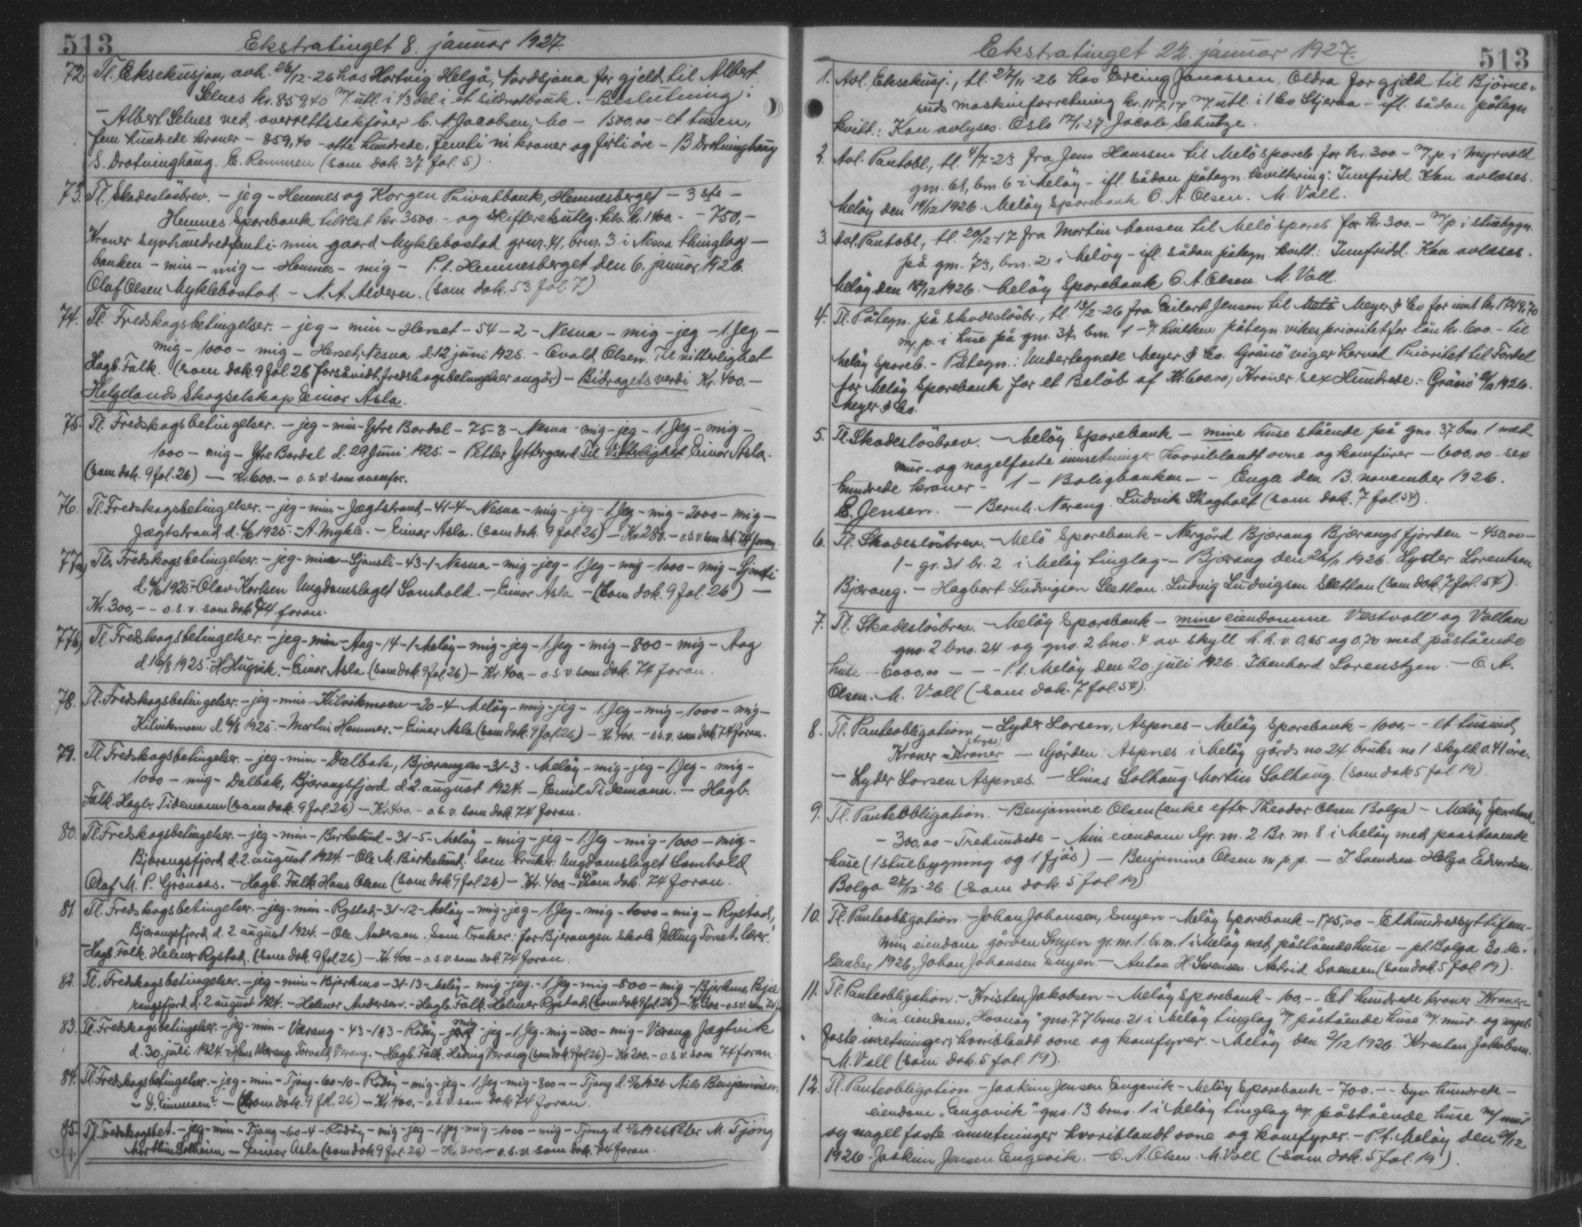 513 Ekstratinget 8. januar 1927.
72. Tl. Eksekusjon, avh. 28/12-26 hos Hartvig Helgå, Nordsjona for gjeld til Albert
Selnes kr. 859,40 m/ utl. i 1/3 del i et sildnotbruk. - Beslutning:
- Albert Selnes ved overrettssakfører C. A. Jacobsen, bo - 1500,00 - et tusen,
fem hundrede kroner - 859,40 - otte hundrede, femti ni kroner og førti øre - B. Drotninghaug
S. Drotninghaug. C. Remmen (som dok 37 fol. 5).
73. Tl. Skadesløsbrev. - jeg - Hemnes og Korgen Privatbank, Hemnesberget - 3 ste -
Hemnes Sparebank tilrest kr. 3500 - og skifteretsutlg. kr. 1400. - - 750,-
Kroner syvhundredfemti - min gaard Myklebostad grnr. 41, brnr. 3 i Nesna thinglag -
banken - min - mig - Hemnes - mig - P.t. Hemnesberget den 6. januar 1926.
Olaf Olsen Myklebostad. - N. A. Alderen. (som dok. 53 fol 7)
74. Tl. Fredskogsbetingelser. - jeg - min - Herset - 54 - 2 - Nesna - mig - jeg - 1 Jeg -
mig - 1000 - mig - Herset, Nesna d. 12 juni 1925. - Evald Olsen. Til vitterlighet
Hagb. Falk. (som dok 9 fol. 26 forsåvidt fredskogsbetingelser angår) - Bidragets verdi Kr. 400. -
Helgelands Skogselskap Einar Asla.
75. Tl. Fredskogsbetingelser. - jeg - min - Ytre Bardal - 75-3 - Nesna - mig - jeg - 1 Jeg - mig -
1000 - mig - Ytre Bardal d. 29 Juni 1925. - Petter Yttergaard. Til Vitterlighet Einar Asla.
(som dok. 9 fol. 26) - Kr. 600. - o.s.v. som ovenfor.
76. Tl. Fredskogsbetingelser. - jeg - min - Jægtstrand - 41-4 - Nesna - mig - jeg - 1 Jeg - mig - 2000 - mig -
Jægtstrand d. 4/6 1925 - A. Mykle. - Einar Asla. (som dok. 9 fol. 26) - Kr. 280. - o.s.v. som dok 74 foran
77a) Tl. Fredskogsbetingelser. - jeg - min - Sjonsli - 43-1 - Nesna - mig - jeg - 1 Jeg - mig - 1000 - mig -
d. 6/6 1925 - Olav Karlsen Ungdomslaget Samhold. - Einar Asla - (som dok. 9 fol. 26) -
Kr. 300, - - o.s.v. som dok 74 foran.
77b) Tl. Fredskogsbetingelser. - jeg - min - Aag - 14-1 - Meløy - mig - jeg - 1 Jeg - mig - 800 - mig - Aag
d. 16/6 1925 - - Einar Asla (som dok 9 fol. 26) - Kr. 400, - o.s.v. som dok. 74 foran.
78. Tl. Fredskogsbetingelser. - jeg - min - Kilvikmoen - 20-4 - Meløy - mig - jeg - 1 Jeg - mig - 1000 - mig -
Kilvikmoen d. 6/6 1925. - Martin Hammer. - Einar Asla (som dok. 9 fol. 26) - Kr. 400. - o.s.v. som dok. 74 foran.
79. Tl. Fredskogsbetingelser. - jeg - min - Dalbak, Bjærangen - 31-3 - Meløy - mig - jeg - 1 Jeg - mig -
1000 - mig - Dalbak, Bjærangsfjord d. 2. august 1924. - Emil Tidemann. - Hagb.
Falk. Hagb. Tidemann (som dok. 9 fol. 26) - Kr. 400 - o.s.v. som dok. 74 foran.
80. Tl. Fredskogsbetingelser. - jeg - min - Birkelund - 31-5 - Meløy - mig - jeg - 1 Jeg - mig - 1000 - mig -
Bjærangsfjord, d. 2. august 1924. - Ole M. Birkelund. Som bruker: Ungdomslaget Samhold
Olaf M. P. Grønaas. - Hagb. Falk Hans Olsen (som dok 9 fol. 26) - Kr. 400 - som dok. 74 foran.
81 Tl. Fredskogsbetingelser. - jeg - min - Rystad - 31-12 - Meløy - mig - jeg - 1 Jeg - mig - 1000 - mig - Rystad,
Bjærangsfjord, d. 2. august 1924. - Ole Andersen. Som bruker: for Bjærangen skole Elling Torset. lærer.
Hagb. Falk. Helmer Rystad. (som dok. 9 fol. 26) - Kr. 400 - o.s.v. som dok 74 foran.
82. Tl. Fredskogsbetingelser. - jeg - min - Bjørkmo - 31-13 - Meløy - mig - jeg - 1 Jeg - mig - 500 - mig - Bjørkmo, Bjæ-
rangsfjord d. 2. august 1924. - Helmer Andersen. - Hagb. Falk. Helmer Rystad (som dok 9 fol. 26) - Kr. 200 - o.s.v. som 74 f.
83. Tl. Fredskogsbetingelser. - jeg - min - Værang - 43-1 & 3 - Rødøy - mig - jeg - 1 Jeg - mig - 500 - mig - Værang Jægtvik
d. 30. juli 1924. - Hans Værang Torvald Værang. - Hagb. Falk. Hedvig Værang (som dok. 9 fol. 26) - Kr. 200. - o.s.v. som 74 foran.
84. Tl. Fredskogsbetingelser. - jeg - min - Tjong - 60-10 - Rødøy - mig - jeg - 1 Jeg - mig - 800 - - Tjong d. 1926 Nils Benjaminsen.
- - (som dok. 9 fol. 26) - Kr. 400. - o.s.v. som dok 74 foran.
85. Tl. Fredskogsbet. - jeg - min - Tjong - 60-4 - Rødøy - mig - jeg - 1 Jeg - mig - 1000 - mig - Tjong d. 1926 Peter M. Tjong
Martin Solheim - Einar Asla (som dok 9 fol. 26) - Kr. 300. - o.s.v. som dok. 74 foran.
Ekstratinget 22. januar 1927. 513
1. Avl. Eksekusj., tl. 27/11-26 hos Edving Janassen, Oldra for gjeld til Bjørne-
ruds maskinforretning kr. 117,17 m/ utl. i 1 ko Stjerna - ifl. sådan påtegn
kvitt.: Kan avlyses. Oslo 12/1-27 Jacob Schutze.
2. Avl. Pantobl., tl. 4/7-23 fra Jens Hanssen til Melø spareb. for kr. 300 - m/ p. i myrvold
gnr. 68, bnr. 6 i Meløy - ifl. sådan påtegn. kvittering: Innfridd. Kan avlæses.
Meløy den 14/12 1926. Meløy Sparebank O. A. Olsen. M. Vall.
3. Avl. Pantobl., tl. 20/12-17 fra Morten Hansen til Melø spareb. for kr. 300. - m/ p. i stuebygn.
på gnr. 73, bnr. 2 i Meløy - ifl. sådan påtegn. kvitt: Innfridd. Kan avlæses.
Meløy den 18/12 1926. Meløy Sparebank O. A. Olsen. M. Vall.
4. Tl. Påtegn. på skadesløsbr., tl. 13/2-26 fra Eilert Jensen til Meyer & Co for inntil kr.
m/ p. i huse på gnr. 37, bnr. 1 - ifl. hvilken påtegn. vikes prioritet for lån kr. 600. - til
Meløy Spareb. - Påtegn: Undertegnede Meyer & Co. Grønø viger herved Prioritet til Fordel
for Meløy Sparebank for et Beløb af Kr. 600,00, Kroner sex Hundrede. - Grønø 1926.
Meyer & Co.
5. Tl. Skadesløsbrev. - Meløy Sparebank - mine huse stående på gno. 37 bno. 1 med
mur- og nagelfaste innretninger hvoriblandt ovne og komfurer - 600,00 - sex
hundrede kroner - 1 - Boligbanken - - Enga den 13. november 1926.
E. Jensen. - Bernh. Nereng. Ludvik Skoghalt (som dok. 7 fol. 54).
6. Tl. Skadesløsbrev. - Melø Sparebank - Nergård Bjærang Bjærangsfjorden - 450,00 -
1 - gr. 31 br. 2 i Meløy tinglag - Bjærang den 26/11 1926. Lyder Lorentsen
Bjærang. - Hagbart Ludvigsen Sletten. Ludvig Ludvigsen Sletten (som dok. 7 fol. 54).
7. Tl. Skadesløsbrev. - Meløy Sparebank - mine eiendomme Vestvoll og Vollan
gno. 2 bno. 24 og gno. 2 bno. 4 av skyld h.h.v. 0,65 og 0,70 med påstående
huse - 6000,00 - - P.t. Meløy den 20. juli 1926. Ibenhard Lorentzen. - O. A.
Olsen. M. Vall (som dok. 7 fol. 54).
8. Tl. Panteobligation. - Lyder Larsen, Aspnes - Meløy Sparebank - 1000, - - et tusind
Kroner - Kroner - Gården Aspnes i Meløy gårds no 24 bruks no 1 skyld 0.41 øre.
- Lyder Larsen Aspnes. - Einar Solhaug Martin Solhaug (som dok 5 fol 19)
9. Tl. Panteobligation. - Benjamine Olsen (enke efter Theodor Olsen Bolga) - Meløy Sparebank
- 300,00 - Trehundrede - Min eiendom Gr. nr. 2 Br. nr. 8 i Meløy med paastaaende
huse (1 stuebygning og 1 fjøs) - Benjamine Olsen m. p. p. - J. Svendsen Helga Edvardsen.
Bolga 27/12-26 (som dok. 5 fol 19)
10. Tl. Panteobligation. - Johan Johansen, Engen - Meløy Sparebank - 175,00 - Ethundredesyttifem -
min eiendom gården Engen gr. nr. 1. br. nr. 1 i Meløy med påstående huse - pt. Bolga 30. de-
sember 1926. Johan Johansen Engen - Anton H. Svensen. Astrid Svensen (som dok. 5 fol. 19).
11. Tl. Panteobligation. - Kristen Jakobsen - Meløy Sparebank - 100, - - Et hundrede kroner - Kroner -
min eiendom, "Havnøy" gno. 77 bno. 21 i Meløy tinglag m/ påstående huse m/ mur- og nagel-
faste inretninger, hvoriblandt ovne og komfyrer. - Meløy den 9/12 1926. Kristen Jakobsen.
M. Vall (som dok. 5 fol 19).
12. Tl. Panteobligation - Joakim Jensen Engavik - Meløy Sparebank - 700. - - Syv hundrede -
eiendom "Engavik" gno. 13 bno. 1 i Meløy tinglag m/ påstående huse m/ mur
og nagelfaste innretninger hvoriblandt ovne og komfyrer. - P.t. Meløy den 9/12
1926. Joakim Jensen Engavik. - O. A. Olsen. M. Vall (som dok. 5 fol. 19).